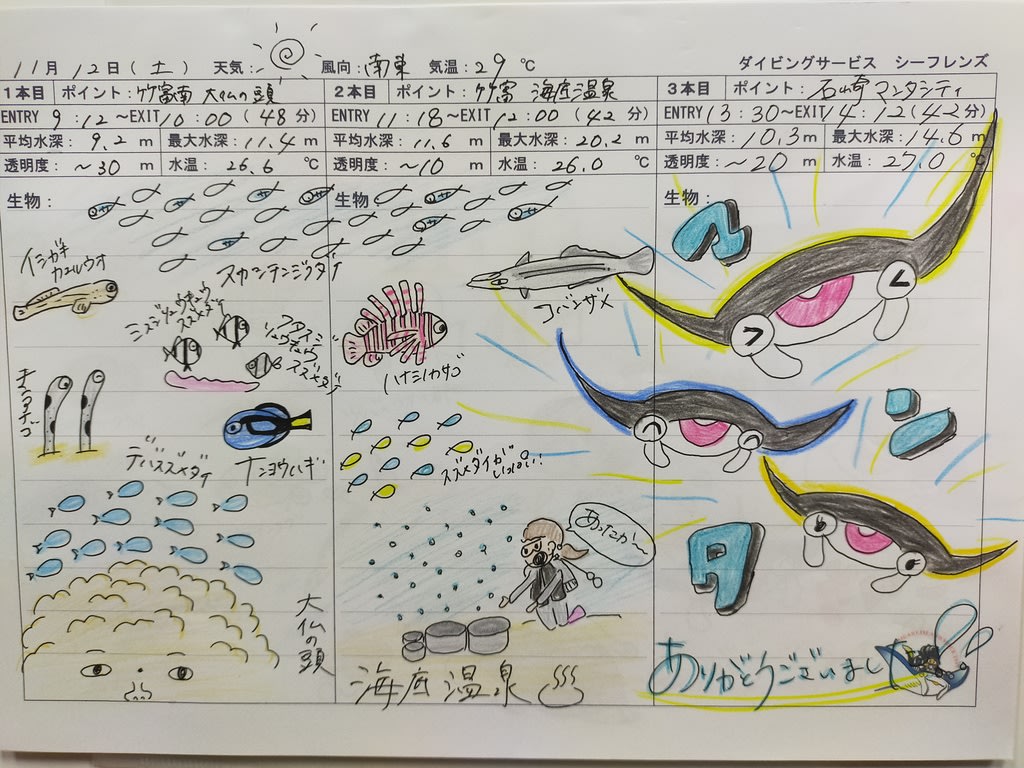 11月 12日(土) 天気: 風向:南東 気温:29℃ ダイビングサービス シーフレンズ
1本目 ポイント:竹富南 大仏の頭
ENTRY 9:12～EXIT 10:00(48分)
平均水深: 9.2 m 最大水深: 11.4 m
透明度: ～30 m 水温: 26.6 ℃
生物:
イシガキ
カエルウオ
スカシテンジクダイ
ミスジリュウキュウ
スズメダイ
フタスジ
リュウキュウ
スズメダイ
チンアナゴ
デバスズメダイ
ナンヨウハギ
大仏の頭
2本目 ポイント:竹富 海底温泉
ENTRY 11:18～EXIT 12:00(42分)
平均水深: 11.6 m 最大水深: 20.2 m
透明度: ～10 m 水温: 26.0 ℃
生物:
コバンザメ
ハナミノカサゴ
スズメダイが
いっぱい!
あったか～
海底温泉
3本目 ポイント:石崎 マンタシティ
ENTRY 13:30～EXIT 14:12(42分)
平均水深: 10.3 m 最大水深: 14.6 m
透明度: ～20 m 水温: 27.0 ℃
生物:
マ
ン
タ
ありがとうございまし